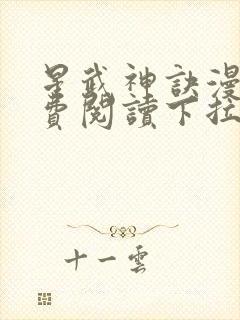 星武神訣漫
費閱讀下拉
十一雲